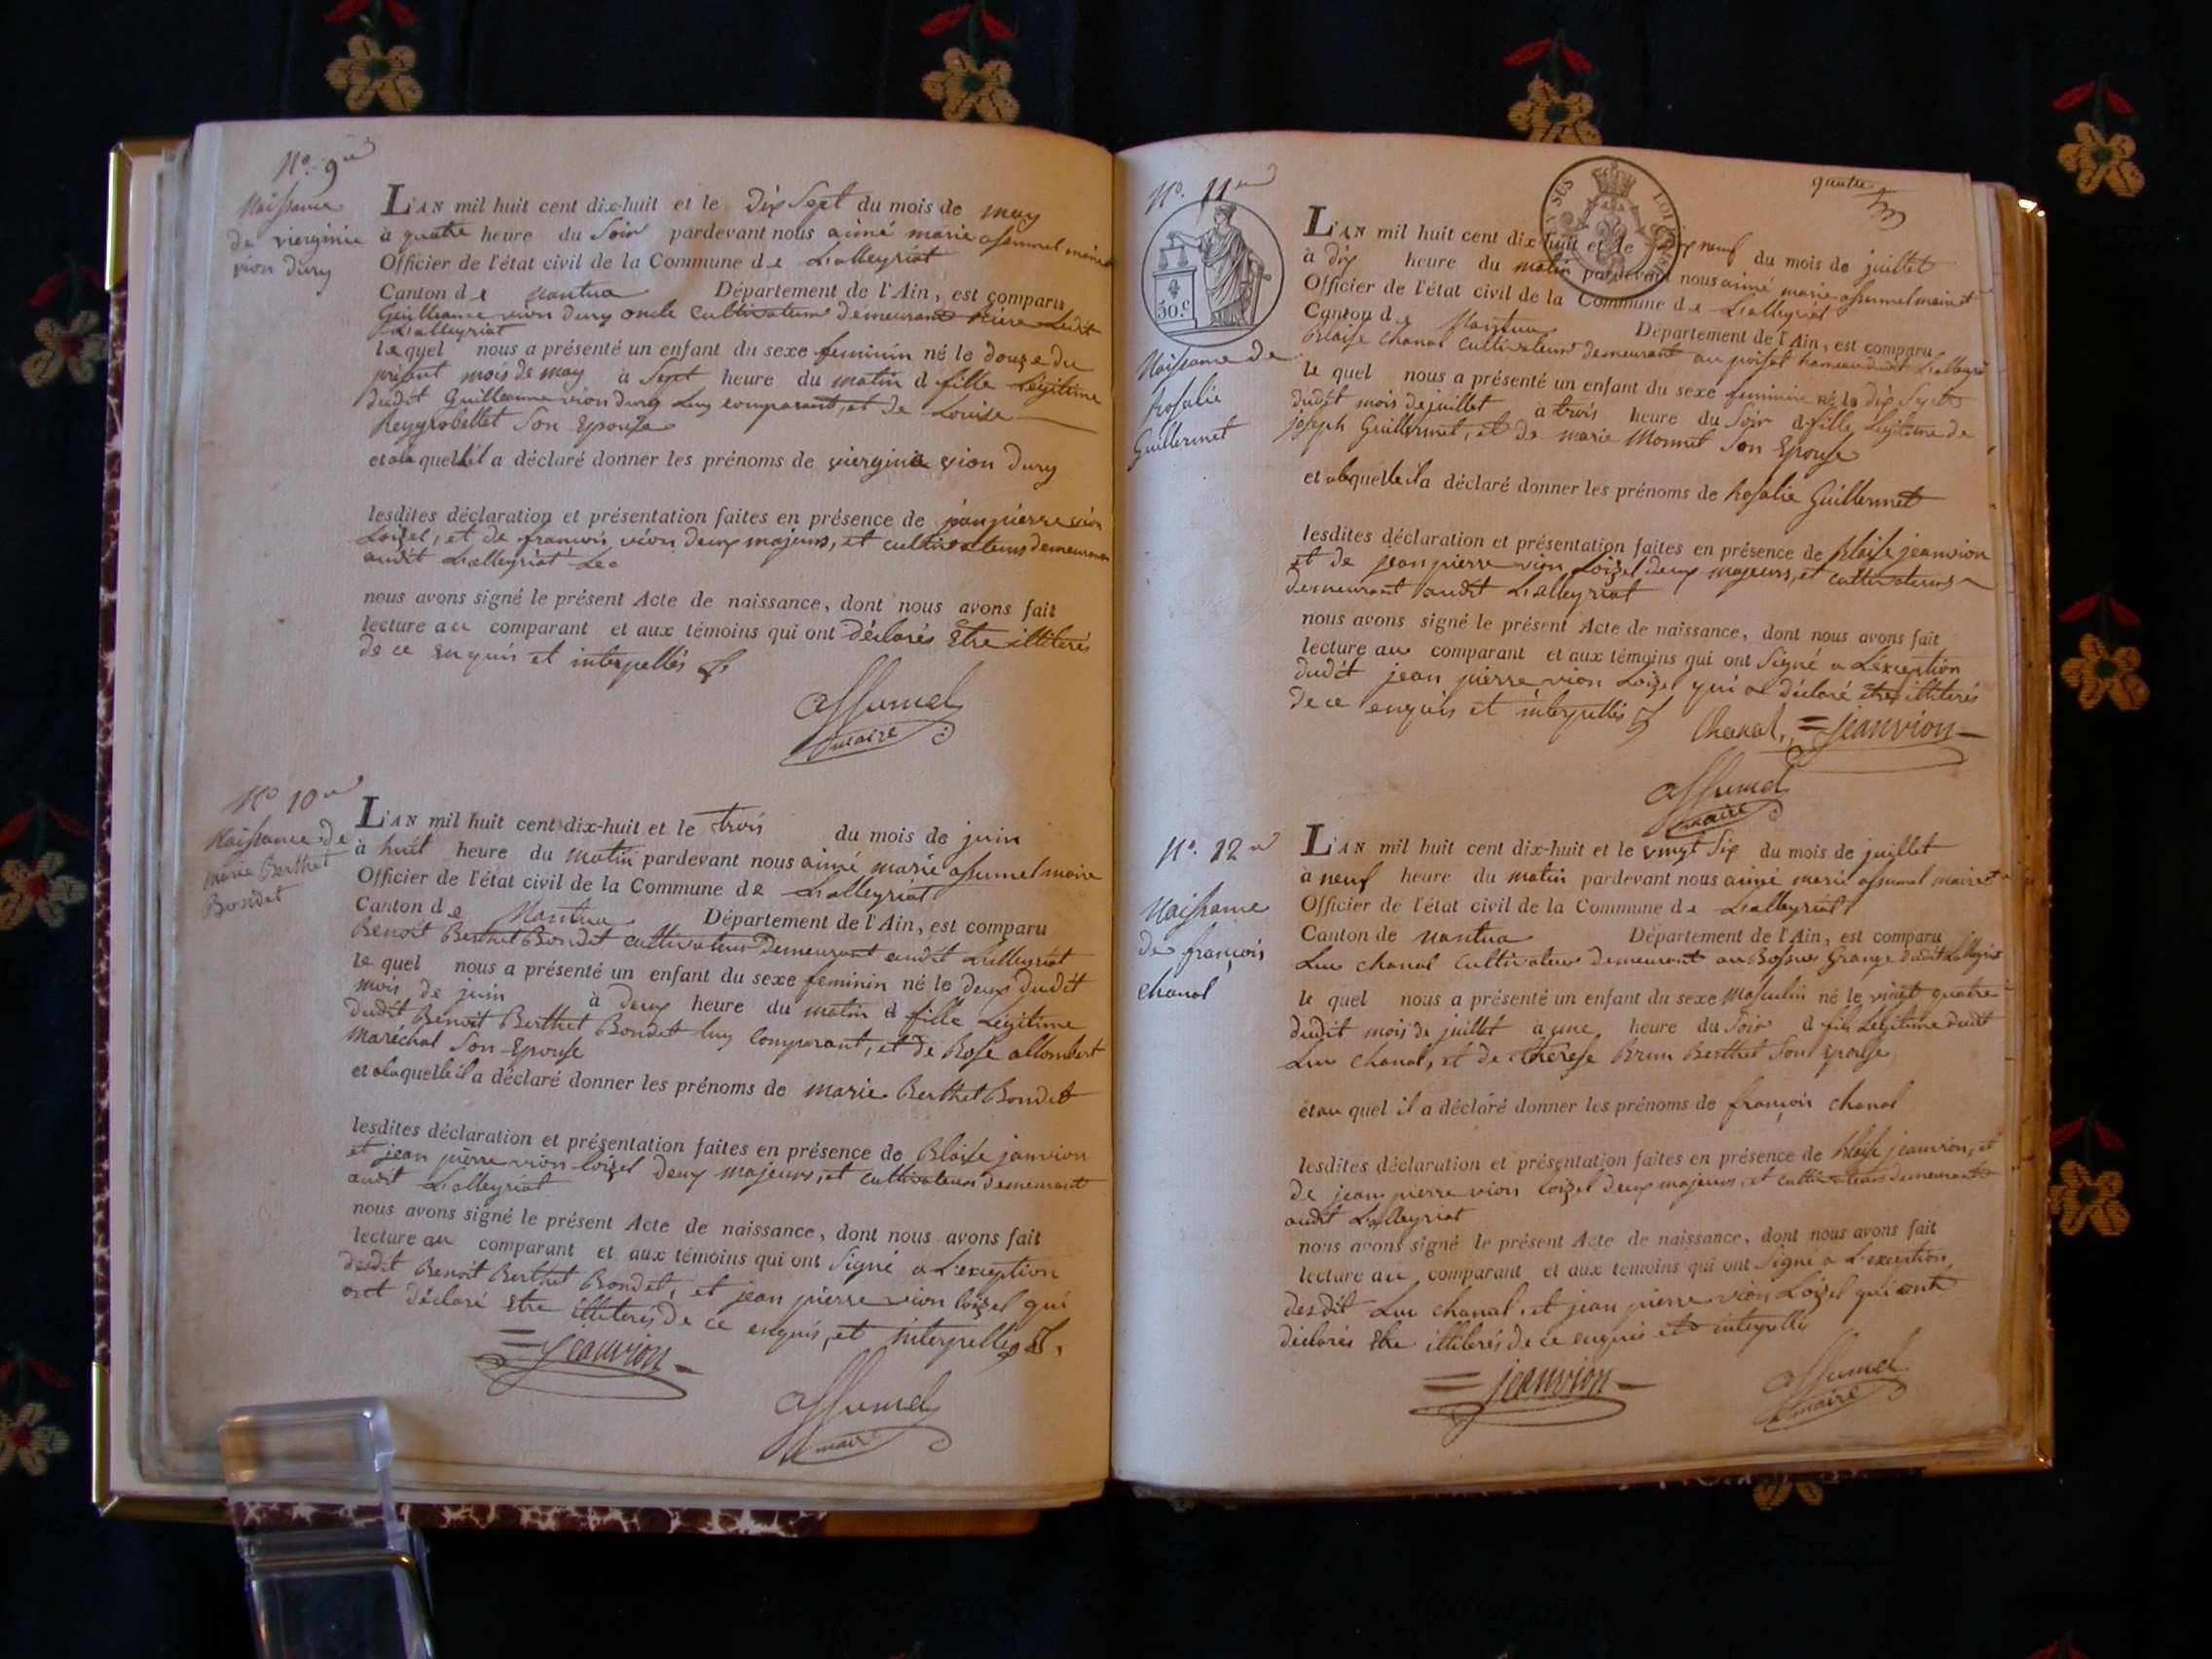 N.o 9
Naissance
de vierginie
vion Dury
L'AN mil huit cent dix-huit et le Dix Sept du mois de may
à quatre heure du Soir pardevant nous aimé marie assumel maire
Officier de l'état civil de la Commune de L'alleyriat
Canton de nantua Département de l'Ain, est comparu
Guillaume vion dury cultivateur demeurant
L'alleyriat
lequel nous a présenté un enfant du sexe feminin né le douze du
présent mois de may à Sept heure du matin d fille Légitime
dudit Guillaume vion dury Luy comparant, et de Louise
Reygrobellet Son Epouse
et a laquelle il a déclaré donner les prénoms de vierginie vion Dury
lesdites déclaration et présentation faites en présence de jean pierre vion
Loizel, et de francois vion deux majeurs, et cultivateurs demeurant
audit L'alleyriat
nous avons signé le présent Acte de naissance, dont nous avons fait
lecture au comparant et aux témoins qui ont déclarés Etre illiterés
de ce enquis et interpellés
assumel
maire
N.o 10
Naissance de
marie Berthet
Bondet
L'AN mil huit cent dix-huit et le trois du mois de juin
à huit heure du matin pardevant nous aimé marie assumel maire
Officier de l'état civil de la Commune de L'alleyriat
Canton de Nantua Département de l'Ain, est comparu
Benoit Berthet Bondet cultivateur Demeurant audit L'alleyriat
le quel nous a présenté un enfant du sexe feminin né le deux dudit
mois de juin à deux heure du matin d fille Légitime
dudit Benoit Berthet Bondet luy comparant, et de Rose allombert
maréchal Son Epouse
et a laquelle il a déclaré donner les prénoms de marie Berthet Bondet
lesdites déclaration et présentation faites en présence de Blaise janvion
et jean pierre vion loizel deux majeurs, et cultivateurs demeurant
audit L'alleyriat
nous avons signé le présent Acte de naissance, dont nous avons fait
lecture au comparant et aux témoins qui ont Signé a L'exception
dudit Benoit Berthet Bondet, et jean pierre vion loizel qui
ont déclaré Etre illiterés De ce enquis, et interpellés
jeanvion
assumel
maire
quatre
N.o 11
50.c
Naissance de
Rosalie
Guillermet
L'AN mil huit cent dix-huit et le neuf du mois de juillet
à dix heure du matin pardevant nous aimé marie assumel maire et
Officier de l'état civil de la Commune de L'alleyriat
Canton de Nantua Département de l'Ain, est comparu
Blaise chanal cultivateur demeurant au poizat hameau dudit L'alleyriat
le quel nous a présenté un enfant du sexe feminin né le dix Sept
dudit mois de juillet à trois heure du Soir d fille Legitime de
joseph Guillermet, et de marie Monnet Son Epouse
et a laquelle il a déclaré donner les prénoms de Rosalie Guillermet
lesdites déclaration et présentation faites en présence de Blaise jeanvion
et de jean pierre vion Loizel deux majeurs, et cultivateurs
demeurant audit L'alleyriat
nous avons signé le présent Acte de naissance, dont nous avons fait
lecture au comparant et aux témoins qui ont Signé a L'exception
dudit jean pierre vion Loizel qui a déclaré etre illiterés
de ce enquis et interpellés
Chanal. jeanvion
assumel
maire
N.o 12
Naissance
de françois
chanal
L'AN mil huit cent dix-huit et le vingt Six du mois de juillet
à neuf heure du matin pardevant nous aimé marie assumel maire et
Officier de l'état civil de la Commune de L'alleyriat
Canton de nantua Département de l'Ain, est comparu
Luc chanal cultivateur demeurant Grange dudit L'alleyriat
le quel nous a présenté un enfant du sexe Masculin né le vingt quatre
dudit mois de juillet à une heure du Soir d fils Légitime dudit
Luc chanal, et de therese Brun Berthet Son Epouse
et au quel il a déclaré donner les prénoms de françois chanal
lesdites déclaration et présentation faites en présence de Blaise jeanvion, et
de jean pierre vion loizel deux majeurs, et cultivateurs demeurant
audit L'alleyriat
nous avons signé le présent Acte de naissance, dont nous avons fait
lecture au comparant et aux témoins qui ont Signé a L'exception
desdit Luc chanal, et jean pierre vion Loizel qui ont
déclarés Etre illiterés de ce enquis et interpellé
jeanvion
assumel
maire